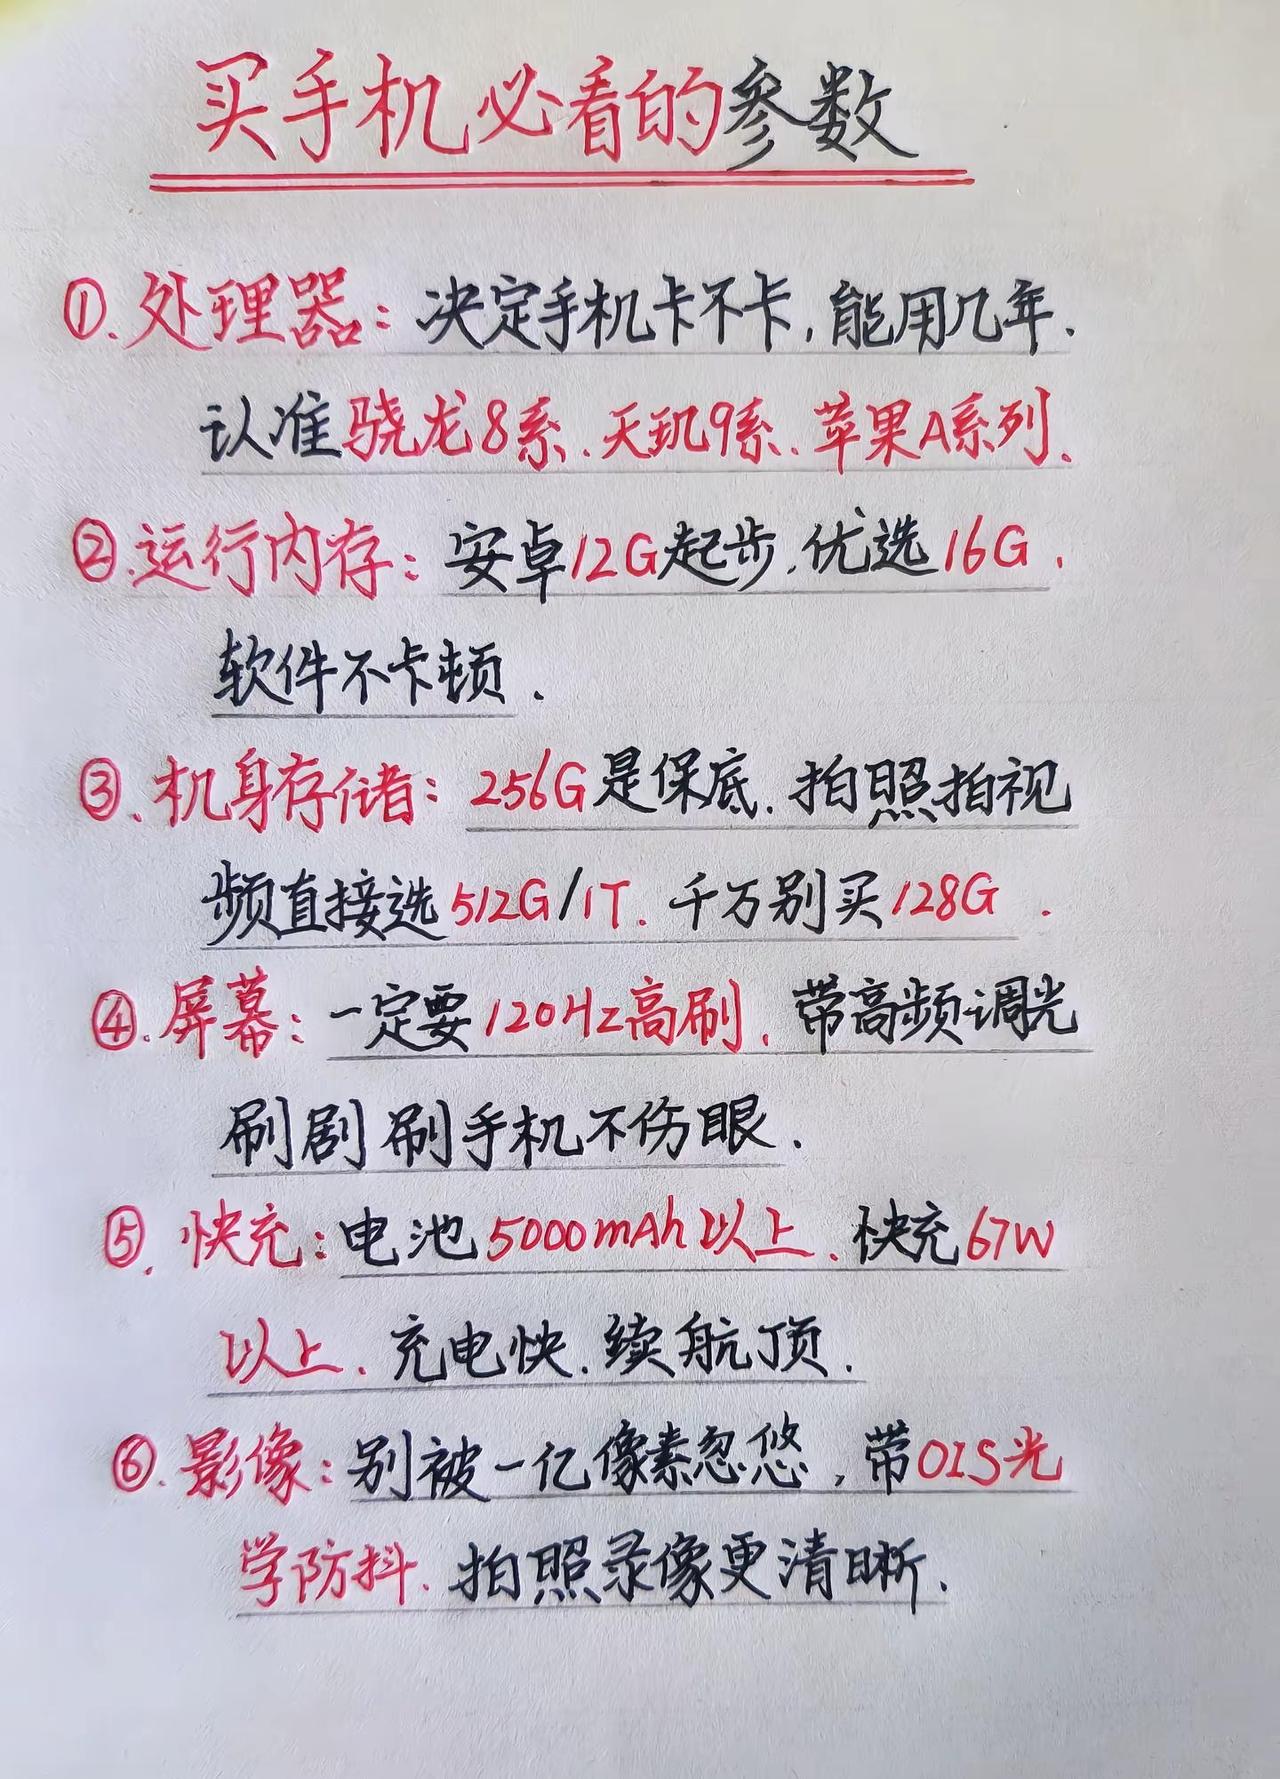 买手机必看的参数
①.处理器：决定手机卡不卡，能用几年.
认准骁龙8系.天玑9系.苹果A系列.
②.运行内存：安卓12G起步.优选16G.
软件不卡顿.
③.机身存储：256G是保底.拍照拍视
频直接选512G/1T.千万别买128G.
④.屏幕：一定要120Hz高刷.带高频调光
刷剧刷手机不伤眼.
⑤.快充：电池5000mAh以上.快充67W
以上.充电快.续航顶.
⑥.影像：别被一亿像素忽悠，带OIS光
学防抖.拍照录像更清晰.